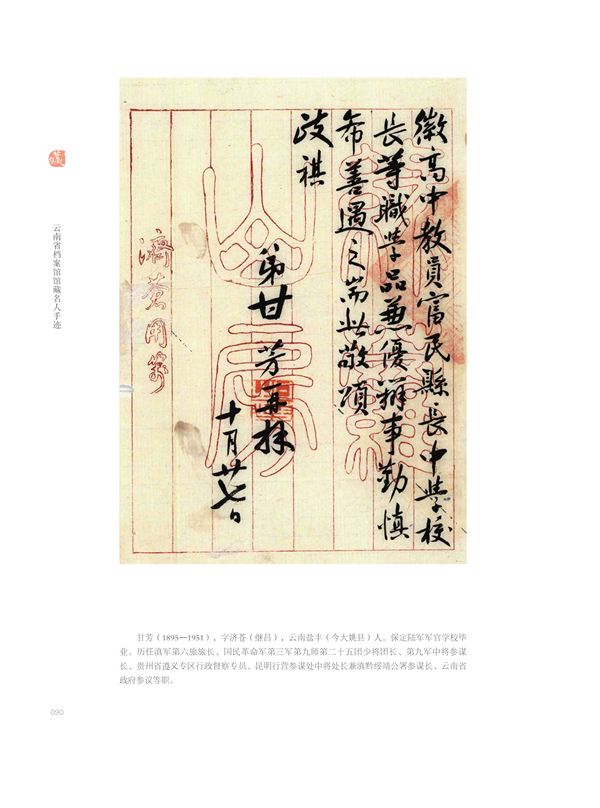 徽高中教員富民縣長中學校
長等職學品兼優辦事勤慎
希善遇之耑此敬頌
政祺
弟甘芳再拜
十月廿七日
濟蒼用箋
藏
云南省档案馆馆藏名人手迹
甘芳（1895—1951），字济苍（继昌），云南盐丰（今大姚县）人。保定陆军军官学校毕
业。历任滇军第六旅旅长、国民革命军第三军第九师第二十五团少将团长、第九军中将参谋
长、贵州省遵义专区行政督察专员、昆明行营参谋处中将处长兼滇黔绥靖公署参谋长、云南省
政府参议等职。
090